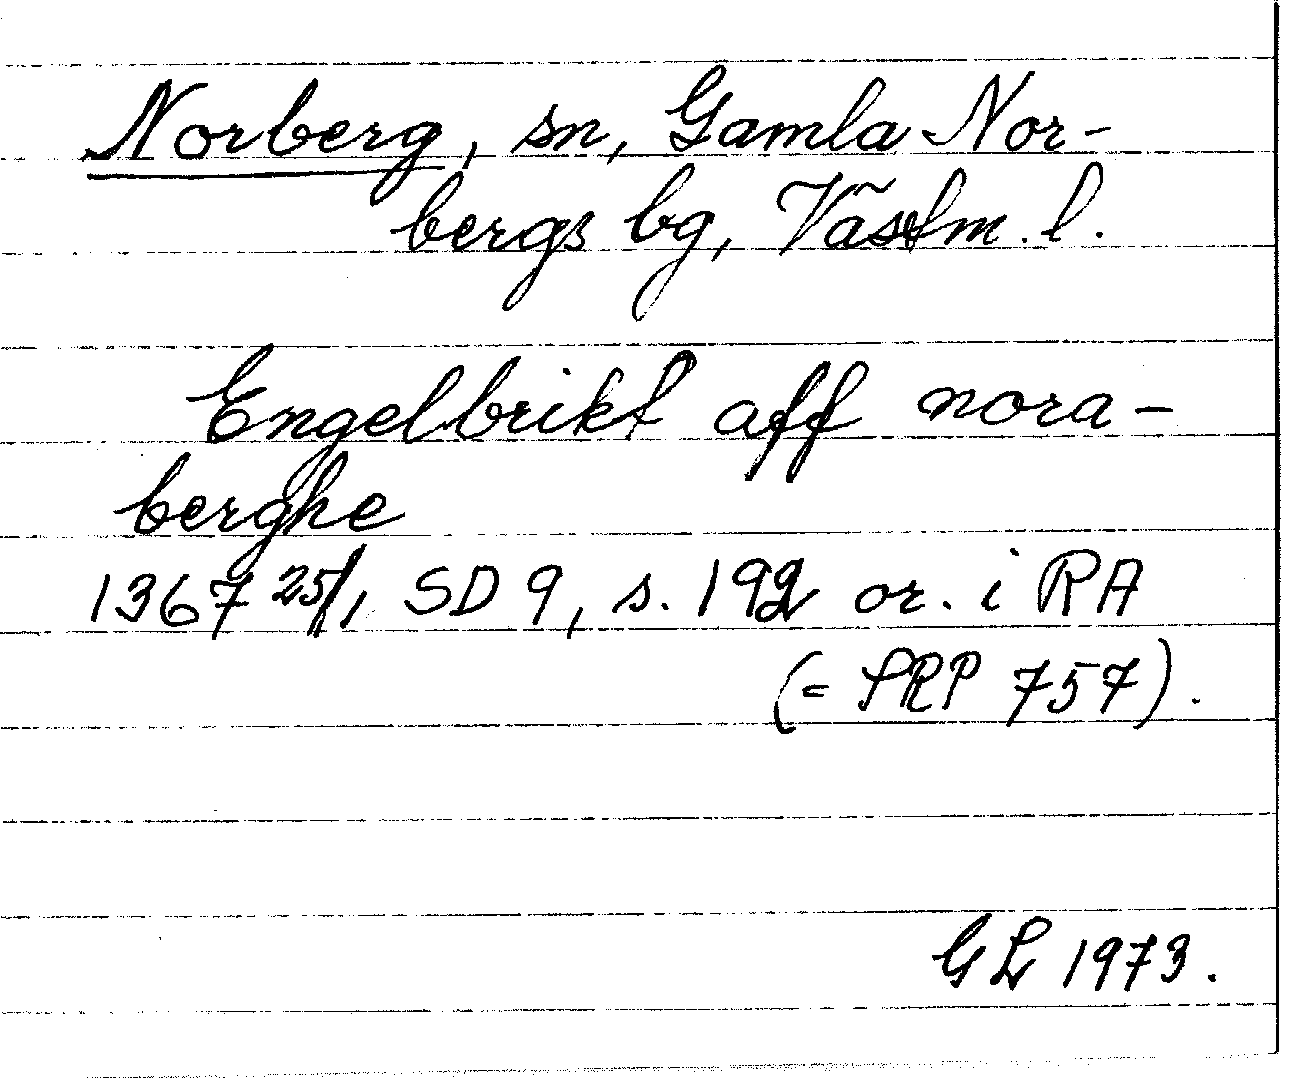 Norberg, sn, Gamla Nor-
bergs bg, Västm. l.
Engelbrikt aff nora-
berghe
1367 25/1, SD 9, s. 192 or. i RA
(= SRP 757).
GL 1973.